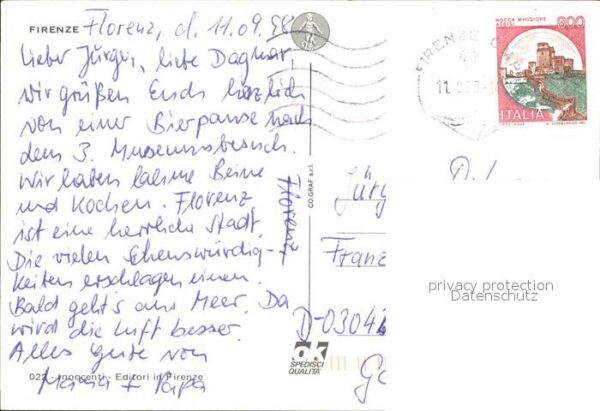 FIRENZE
Florenz, d. 11.09.98
Lieber Jürgen, liebe Dagmar,
wir grüßen Euch herzlich
von einer Bierpause nach
dem 3. Museumsbesuch.
Wir haben lahme Beine
und Knochen. Florenz
ist eine herrliche Stadt.
Die vielen Sehenswürdig-
keiten erschlagen einen.
Bald geht's ans Meer. Da
wird die Luft besser.
Alles Gute von
Mama + Papa
022 - Innocenti - Editori in Firenze
Florenz
CO.GRAF s.r.l.
ok
SPEDISCI
QUALITA'
ROCCA MAGGIORE
ASSISI
600
ITALIA
FIRENZE
Jürg
Franz
D-03042
privacy protection
Datenschutz